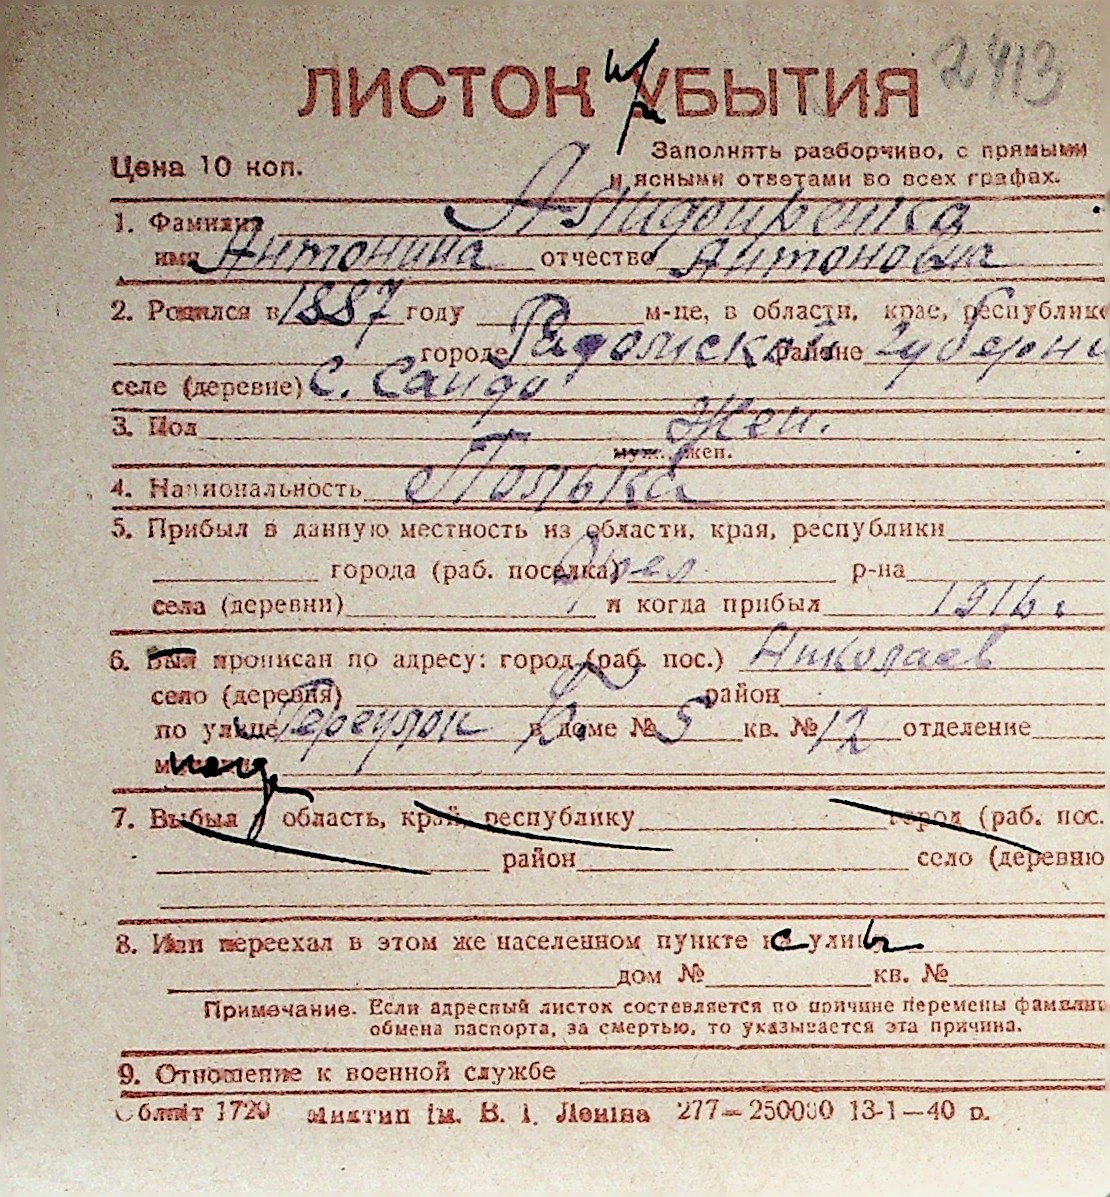 2413
ЛИСТОК УБЫТИЯ
Цена 10 коп.
Заполнять разборчиво, с прямыми
и ясными ответами во всех графах.
1. Фамилия
имя Антонина отчество Антоновна
2. Родился в 1887 году м-це, в области, крае, республике
городе Радомской районе губерни
селе (деревне) С.
3. Пол Жен.
муж. жен.
4. Национальность Полька
5. Прибыл в данную местность из области, края, республики
города (раб. поселка) Орел р-на
села (деревни) и когда прибыл 1916 г
6. Был прописан по адресу: город (раб. пос.) Николаев
село (деревня) район
по улице Переулок в доме № 5 кв. № 12 отделение
7. Выбыл в область, край, республику город (раб. пос.
район село (деревню
8. Или переехал в этом же населенном пункте на улицу
дом № кв. №
Примечание. Если адресный листок составляется по причине перемены фамилии
обмена паспорта, за смертью, то указывается эта причина.
9. Отношение к военной службе
Обліт 1720 Миктип ім. В. І. Леніна 277—250000 13-1—40 р.